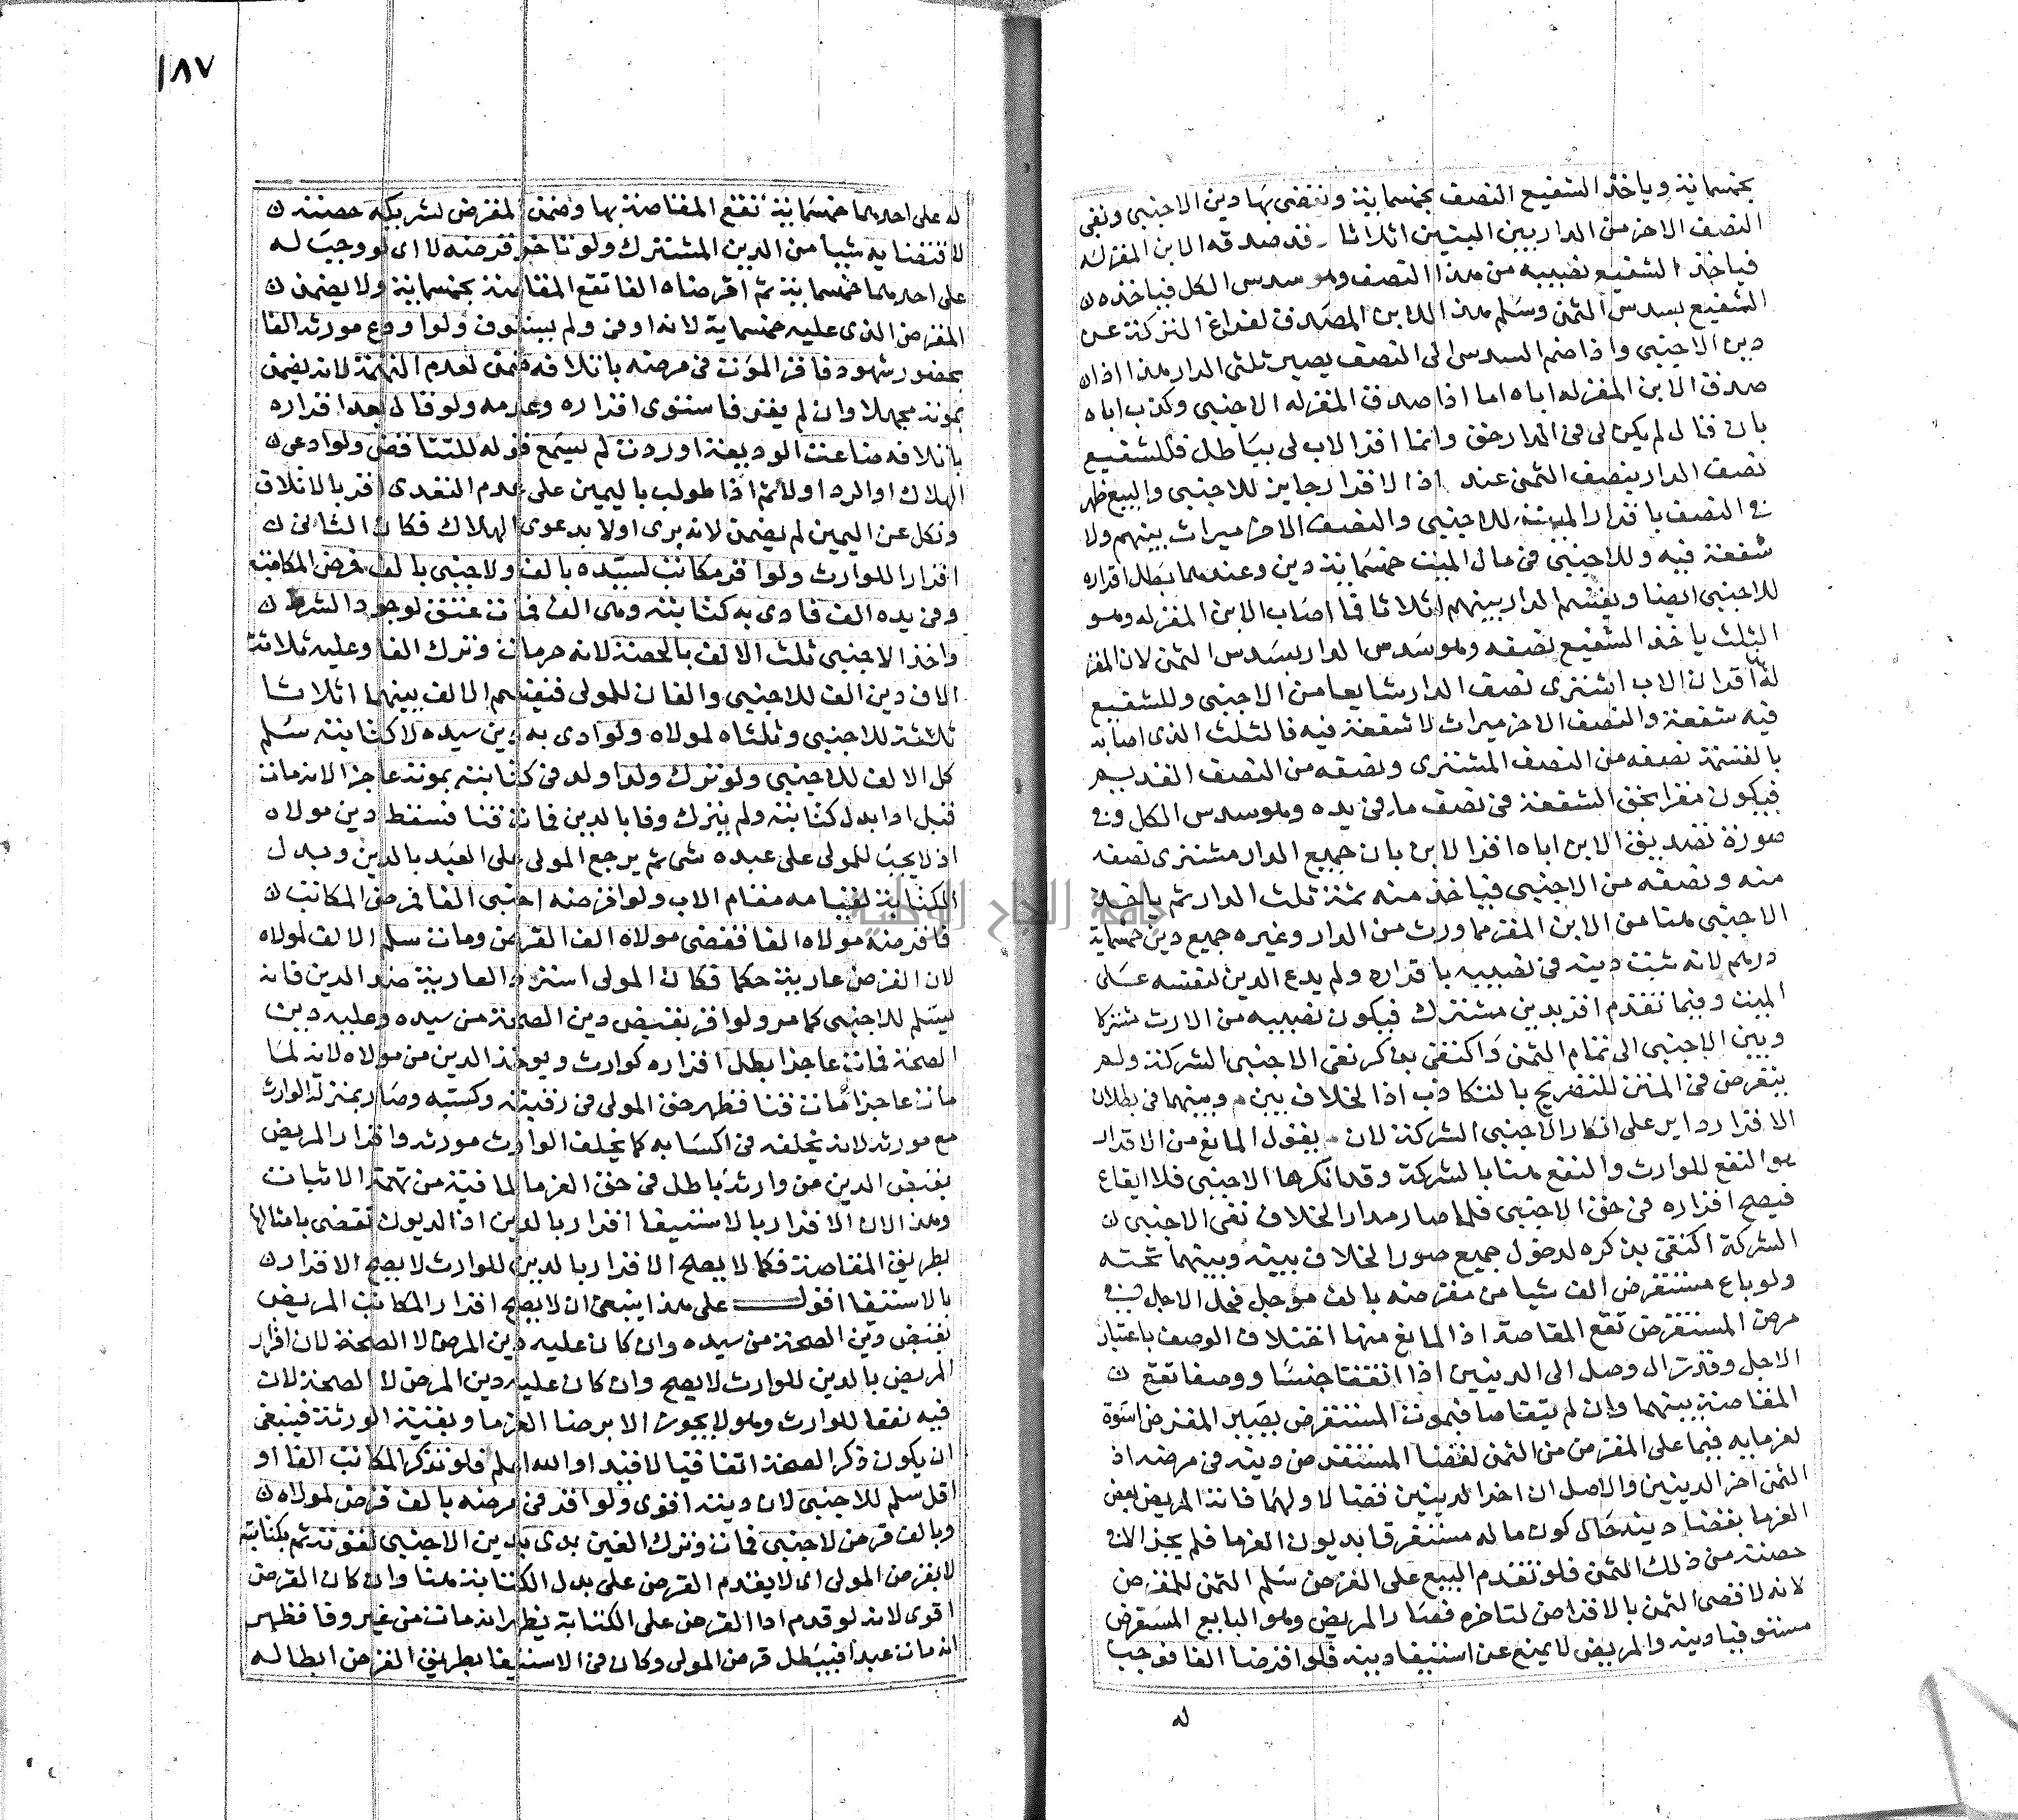 بخمسماية وياخذ الشفيع النصف بخمسماية ونقضى بها دين الاجنبى وبقى
النصف الاخر من الدار بين البنين اثلاثا وقد صدقه الابن المقر له
فياخذ الشفيع نصيبه من هذا النصف وهو سدس الكل فياخذه
الشفيع بسدس الثمن وسلم هذا للابن المصدق لفراغ التركة عن
دين الاجنبى واذا ضم السدس الى النصف يصير ثلثى الدار هذا اذا
صدق الابن المقر له اباه اما اذا صدق المقر له الاجنبى وكذب اباه
بان قال لم يكن لى فى الدار حق وانما اقر الاب لى بباطل فللشفيع
نصف الدار بنصف الثمن عند اذ الاقرار جايز للاجنبى والبيع ظهر
فى النصف باقرار الميت للاجنبى والنصف الاخر ميراث بينهم ولا
شفعة فيه وللاجنبى فى مال الميت خمسماية دين وعندهما بطل اقراره
للاجنبى ايضا ويقسم الدار بينهم اثلاثا فما اصاب الابن المقر له وهو
الثلث ياخذ الشفيع نصفه وهو سدس الدار بسدس الثمن لان المقر
له اقر ان الاب اشترى نصف الدار شايعا من الاجنبى وللشفيع
فيه شفعة والنصف الاخر ميراث لا شفعة فيه فالثلث الذى اصابه
بالقسمة نصفه من النصف المشترى ونصفه من النصف القديم
فيكون مقرا بحق الشفعة فى نصف ما فى يده وهو سدس الكل وفى
صورة تصديق الابن اباه اقر الابن بان جميع الدار مشترى نصفه
منه ونصفه من الاجنبى فياخذ منه ثمة ثلث الدار ثم ياخذ
الاجنبى هنا من الابن المقر مما ورث من الدار وغيره جميع دين خمسماية
درهم لانه ثبت دينه فى نصيبه باقراره ولم يدع الدين لنفسه على
الميت وفيما تقدم اقر بدين مشترك فيكون نصيبه من الارث مشتركا
وبين الاجنبى الى تمام الثمن واكتفى بذكر نفى الاجنبى الشركة ولم
يتعرض فى المتن للتصريح بالتكاذب اذ الخلاف بين م وبينهما فى بطلان
الاقرار داير على انكار الاجنبى الشركة لان م يقول المانع من الاقرار
هو النفع للوارث والنفع هنا بالشركة وقد انكرها الاجنبى فلا ايقاع
فيصح اقراره فى حق الاجنبى فلما صار مدار الخلاف نفى الاجنبى
الشركة اكتفى بذكره لدخول جميع صور الخلاف بينه وبينهما تحته
ولو باع مستقرض الف شيا من مقرضه بالف موجل فحل الاجل فى
مرض المستقرض تقع المقاصة اذ المانع منها اختلاف الوصف باعتبار
الاجل وقد زال وصل الى الدينين اذا اتفقتا جنسا ووصفا تقع
المقاصة بينهما وان لم يتقاصا فبموت المستقرض يصير المقرض اسوة
لغرمايه فيما على المقرض من الثمن لقضا المستقرض دينه فى مرضه اذ
الثمن اخر الدينين والاصل ان اخر الدينين قضا لاولهما فاذا المريض بعض
الغرما بقضا دينه حال كون ماله مستغرقا بديون الغرما فلم يجز الا فى
حصته من ذلك الثمن فلو تقدم البيع على القرض سلم الثمن للمقرض
لانه لا قضى الثمن بالاقراض لتاخره فصار المريض وهو البايع المستقرض
مستوفيا دينه والمريض لا يمنع عن استيفا دينه فلو اقرضا الفا فوجب
له
١٨٧
له على احدهما خمسماية تقع المقاصة بها وضمن المقرض لشريكه حصته
لاقتضايه شيا من الدين المشترك ولو تاخر قرضه لا اى لو وجب له
على احدهما خمسماية ثم اقرضاه الفا تقع المقاصة بخمسماية ولا يضمن
المقرض الذى عليه خمسماية لانه اوفى ولم يستوف ولو اودع مورثه الفا
بحضور شهود فاقر المودع فى مرضه باتلافه ضمن لعدم التهمة لانه يضمن
بموته مجهلا وان لم يقر فاستوى اقراره وعدمه ولو قال بعد اقراره
باتلافه ضاعت الوديعة او ردت لم يسمع قوله للتناقض ولو ادعى
الهلاك او الرد اولا ثم اذا طولب باليمين على عدم التعدى اقر بالاتلاف
ونكل عن اليمين لم يضمن لانه برى اولا بدعوى الهلاك فكان الثانى
اقرارا للوارث ولو اقر مكاتب لسيده بالف ولاجنبى بالف فمرض المكاتب
وفى يده الف فادى به كتابته وهى الف فمات عتق لوجود الشرط
واخذ الاجنبى ثلث الالف بالحصة لانه حر مات وترك الفا وعليه ثلاثة
الاف دين الف للاجنبى والفان للمولى فنقسم الالف بينهما اثلاثا
ثلثه للاجنبى وثلثاه لمولاه ولو ادى به دين سيده لا كتابته سلم
كل الالف للاجنبى ولو ترك ولدا ولد فى كتابته بموته عاجزا لانه مات
قبل ادا بدل كتابته ولم يترك وفا بالدين فمات قنا فسقط دين مولاه
اذ لا يجب للمولى على عبده شى ثم يرجع المولى على العبد بالدين وبدل
الكتابة لقيامه مقام الاب ولو اقرضه اجنبى الفا فمرض المكاتب
فاقرضه مولاه الفا فقضى مولاه الف القرض ومات سلم الالف لمولاه
لان القرض عارية حكما فكان المولى استرد العارية ضد الدين فانه
يسلم للاجنبى كما مر ولو اقر بقبض دين الصحة من سيده وعليه دين
الصحة فمات عاجزا بطل اقراره كوارث ويوخذ الدين من مولاه لانه لما
مات عاجزا مات قنا فظهر حق المولى فى رقبته وكسبه وصار بمنزلة الوارث
مع مورثه لانه يخلفه فى اكسابه كما يخلف الوارث مورثه واقرار المريض
بقبض الدين من وارثه باطل فى حق الغرما لما فيه من تهمة الاثبات
وهذا لان الاقرار بالاستيفا اقرار بالدين اذ الديون تقضى بامثالها
بطريق المقاصة فكما لا يصلح الاقرار بالدين للوارث لا يصح الاقرار
بالاستيفا اقول على هذا ينبغى ان لا يصح اقرار المكاتب المريض
بقبض دين الصحة من سيده وان كان عليه دين المرض لا الصحة لان اقرار
المريض بالدين للوارث لا يصح وان كان عليه دين المرض لا الصحة لان
فيه نفعا للوارث وهو لا يجوز الا برضا الغرما وبقية الورثة فينبغى
ان يكون ذكر الصحة اتفاقيا لا قيدا والله اعلم فلو تذكر المكاتب الفا او
اقل سلم للاجنبى لان دينه اقوى ولو اقر فى مرضه بالف قرض لمولاه
وبالف قرض لاجنبى فمات وترك الفين بدى بدين الاجنبى لقوته ثم بكتابته
لا بقرض المولى اى لا يقدم القرض على بدل الكتابة هنا وان كان القرض
اقوى لانه لو قدم ادا القرض على الكتابة يظهر انه مات من غير وفا فظهر
انه مات عبدا فيبطل قرض المولى وكان فى الاستيفا بطريق القرض ابطاله